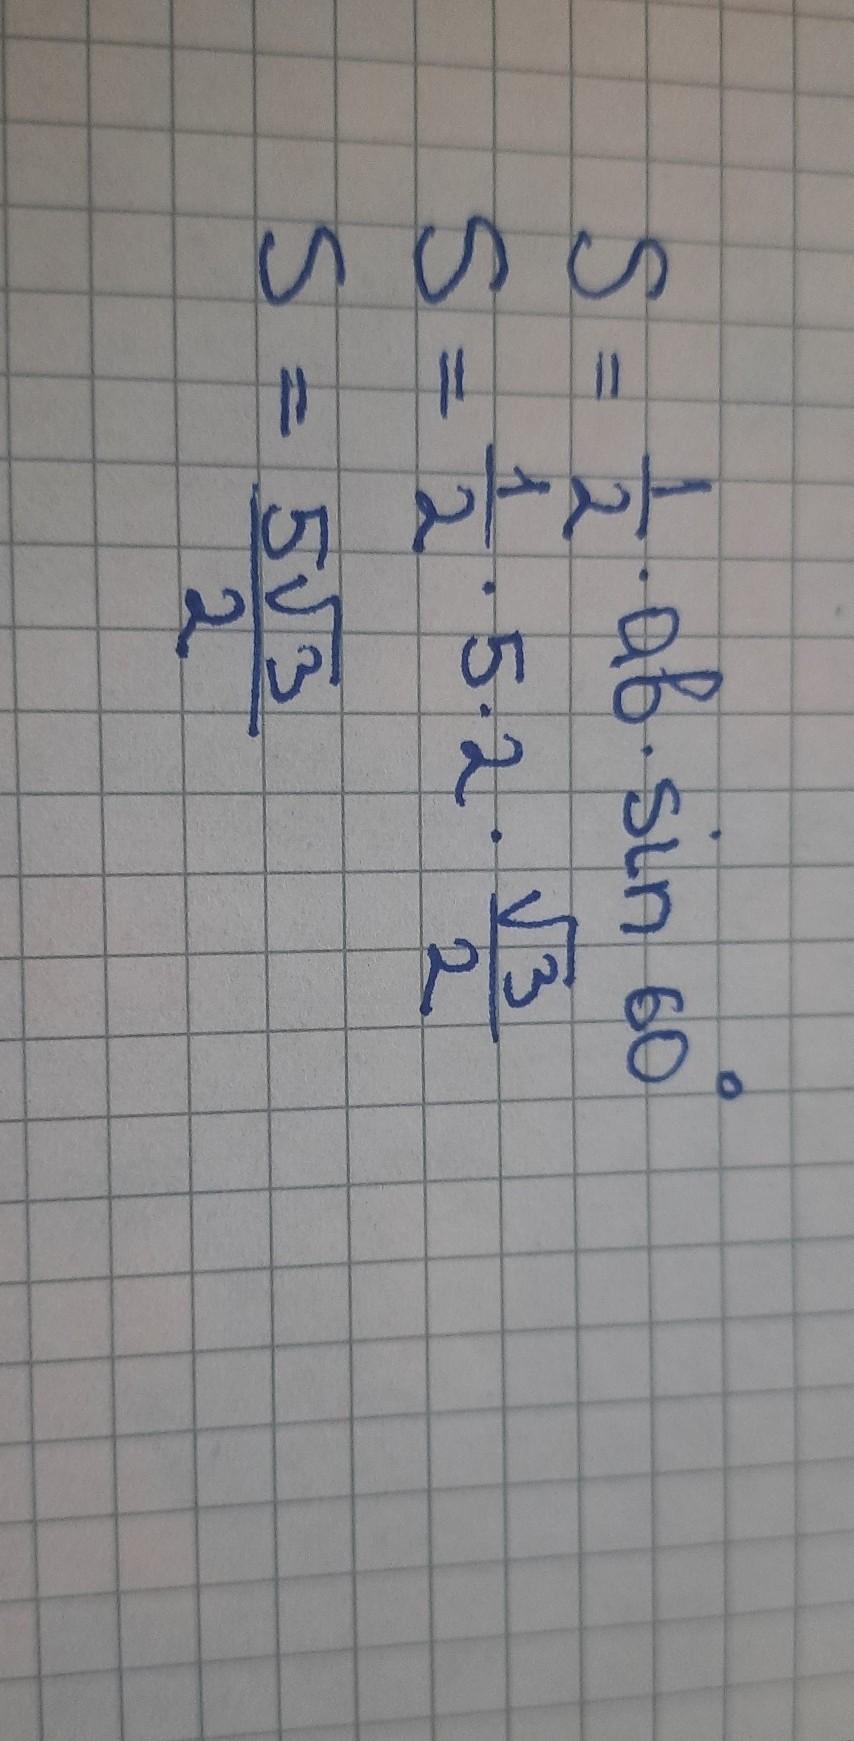 S = 1/2 · ab · sin 60°
S = 1/2 · 5 · 2 · √3/2
S = 5√3/2